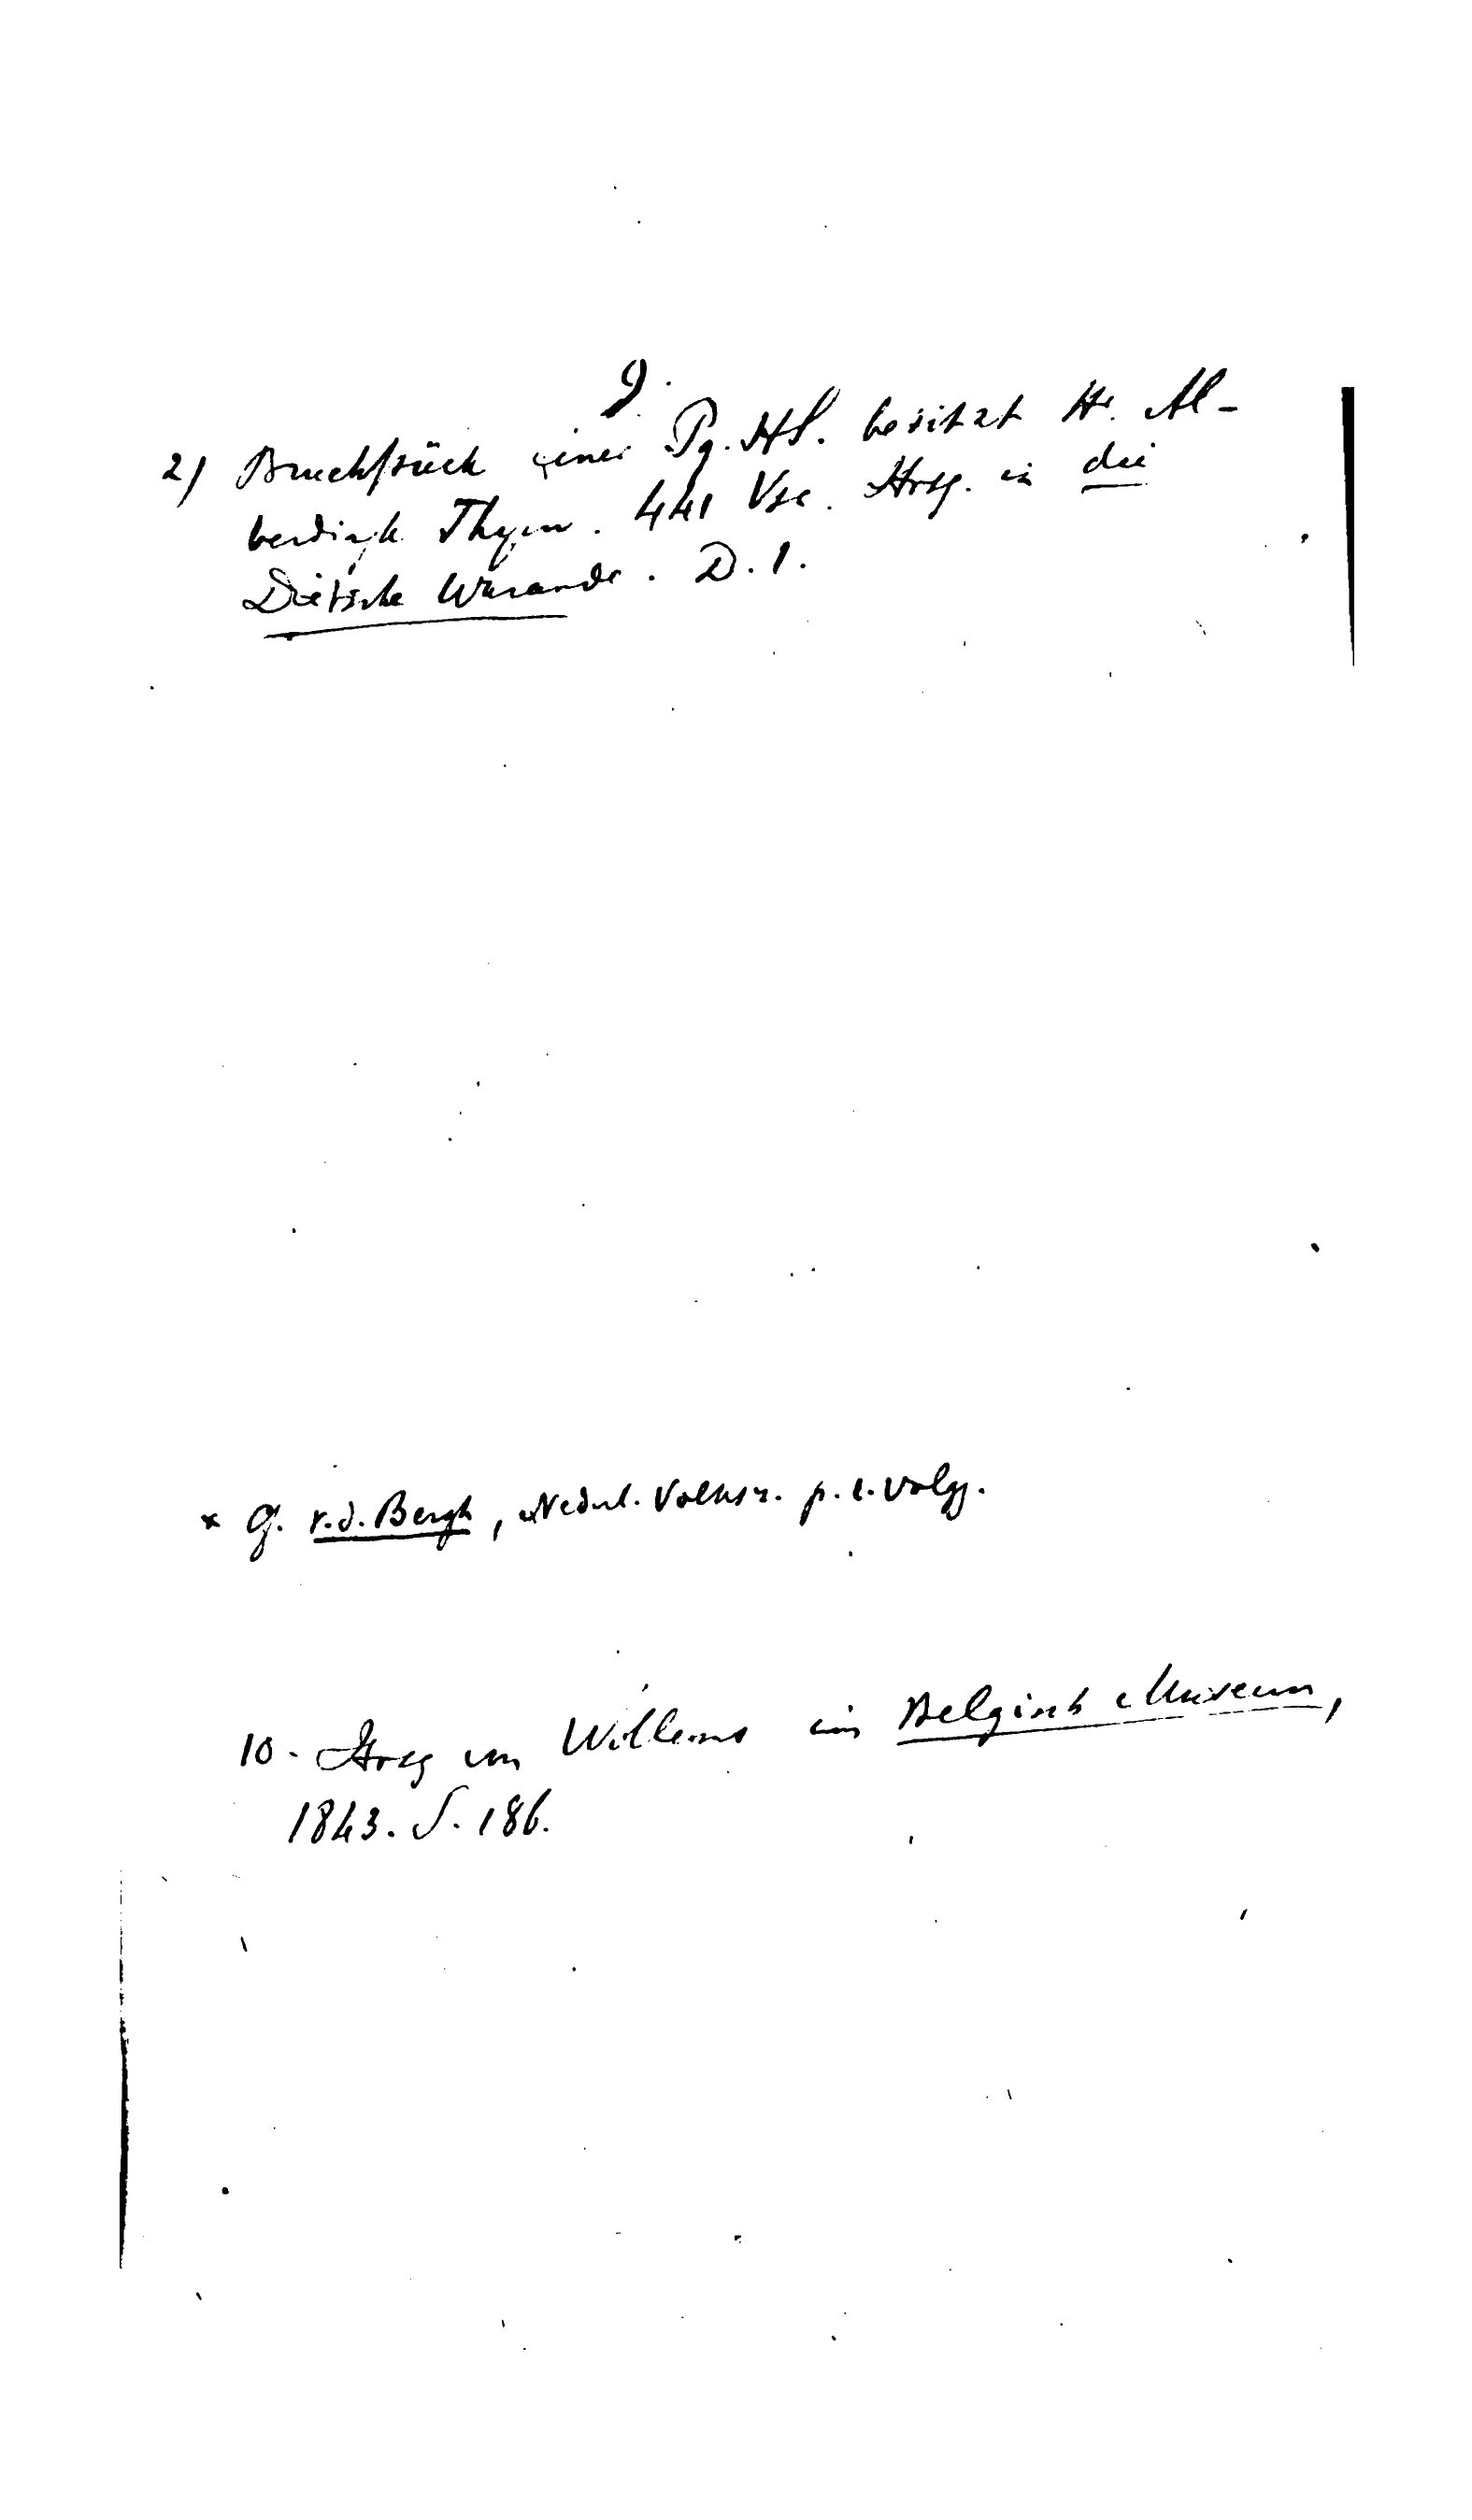 D.
2) Bruchstück einer Pg. Hs. besitzt Hr. Al-
berdingk Thijm. 441 Vse. Hrsg. in die
Dietsche Warande. D. 1.
× G. v.d. Bergh, Nederl. Volksr. p. e. volg.
10 - Hrsg von Willems im Belgisch Museum,
1843. S. 186.